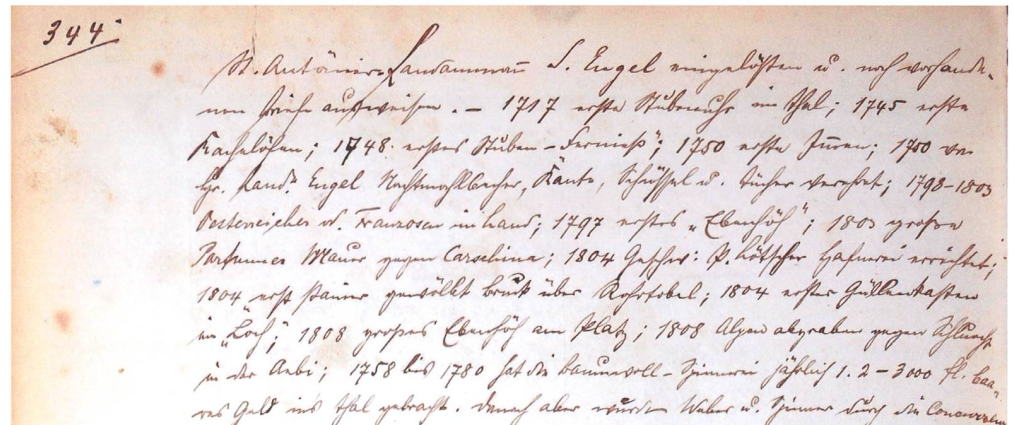 344.
St. Antönier-Landammañ S. Engel eingelösten u. noch vorhande-
nen Briefe aufweisen. – 1717 erste Stubenuhr im Thal; 1745 erste
Kachelöfen; 1748 erstes Stuben-Ferniess"; 1750 erste Juren; 1750 von
Hr. Land. Engel Nachtmahlbecher, Kante, Schüssel u. Tücher verehrt; 1798–1803
Oesterreicher u. Franzosen im Land; 1797 erstes „Ebenhöh"; 1803 grosse
Partnuner Mauer gegen Carschina; 1804 Geschw: P. Lötscher Hafnerei errichtet;
1804 erst stainer gewölbt Bruck über Rohrtobel; 1804 erster Güllenkasten
im „Loch"; 1808 grosses Ebenhöh am Platz; 1808 Alpen abgraben gegen Schlucht
in der Aebi; 1758 bis 1780 hat die Baumwoll-Spinnerei jährlich 1. 2–3000 fl. baa-
res Geld ins Thal gebracht. Danach aber wurden Weber u. Spinner durch die Concurrenz